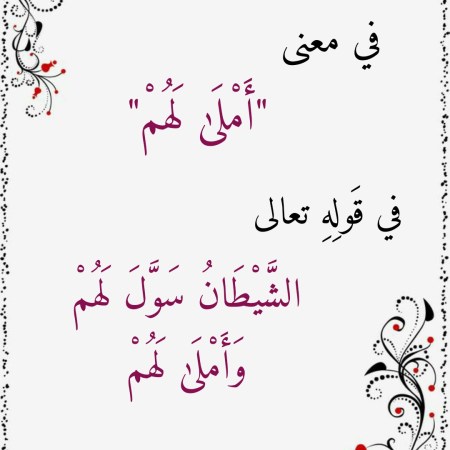 في معنى
"أَمْلَىٰ لَهُمْ"
في قَولِهِ تعالى
الشَّيْطَانُ سَوَّلَ لَهُمْ
وَأَمْلَىٰ لَهُمْ